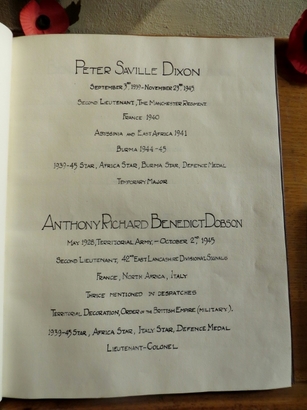 Peter Saville Dixon
September 3rd, 1939 - November 23rd, 1945
Second Lieutenant, The Manchester Regiment.
France 1940
Abyssinia and East Africa 1941
Burma 1944-45
1939-45 Star, Africa Star, Burma Star, Defence Medal
Temporary Major
Anthony Richard Benedict Dobson
May 1928, Territorial Army, - October 2nd 1945
Second Lieutenant, 42nd East Lancashire Divisional Signals
France, North Africa, Italy
Thrice mentioned in despatches
Territorial Decoration, Order of the British Empire (Military),
1939-45 Star, Africa Star, Italy Star, Defence Medal
Lieutenant-Colonel.